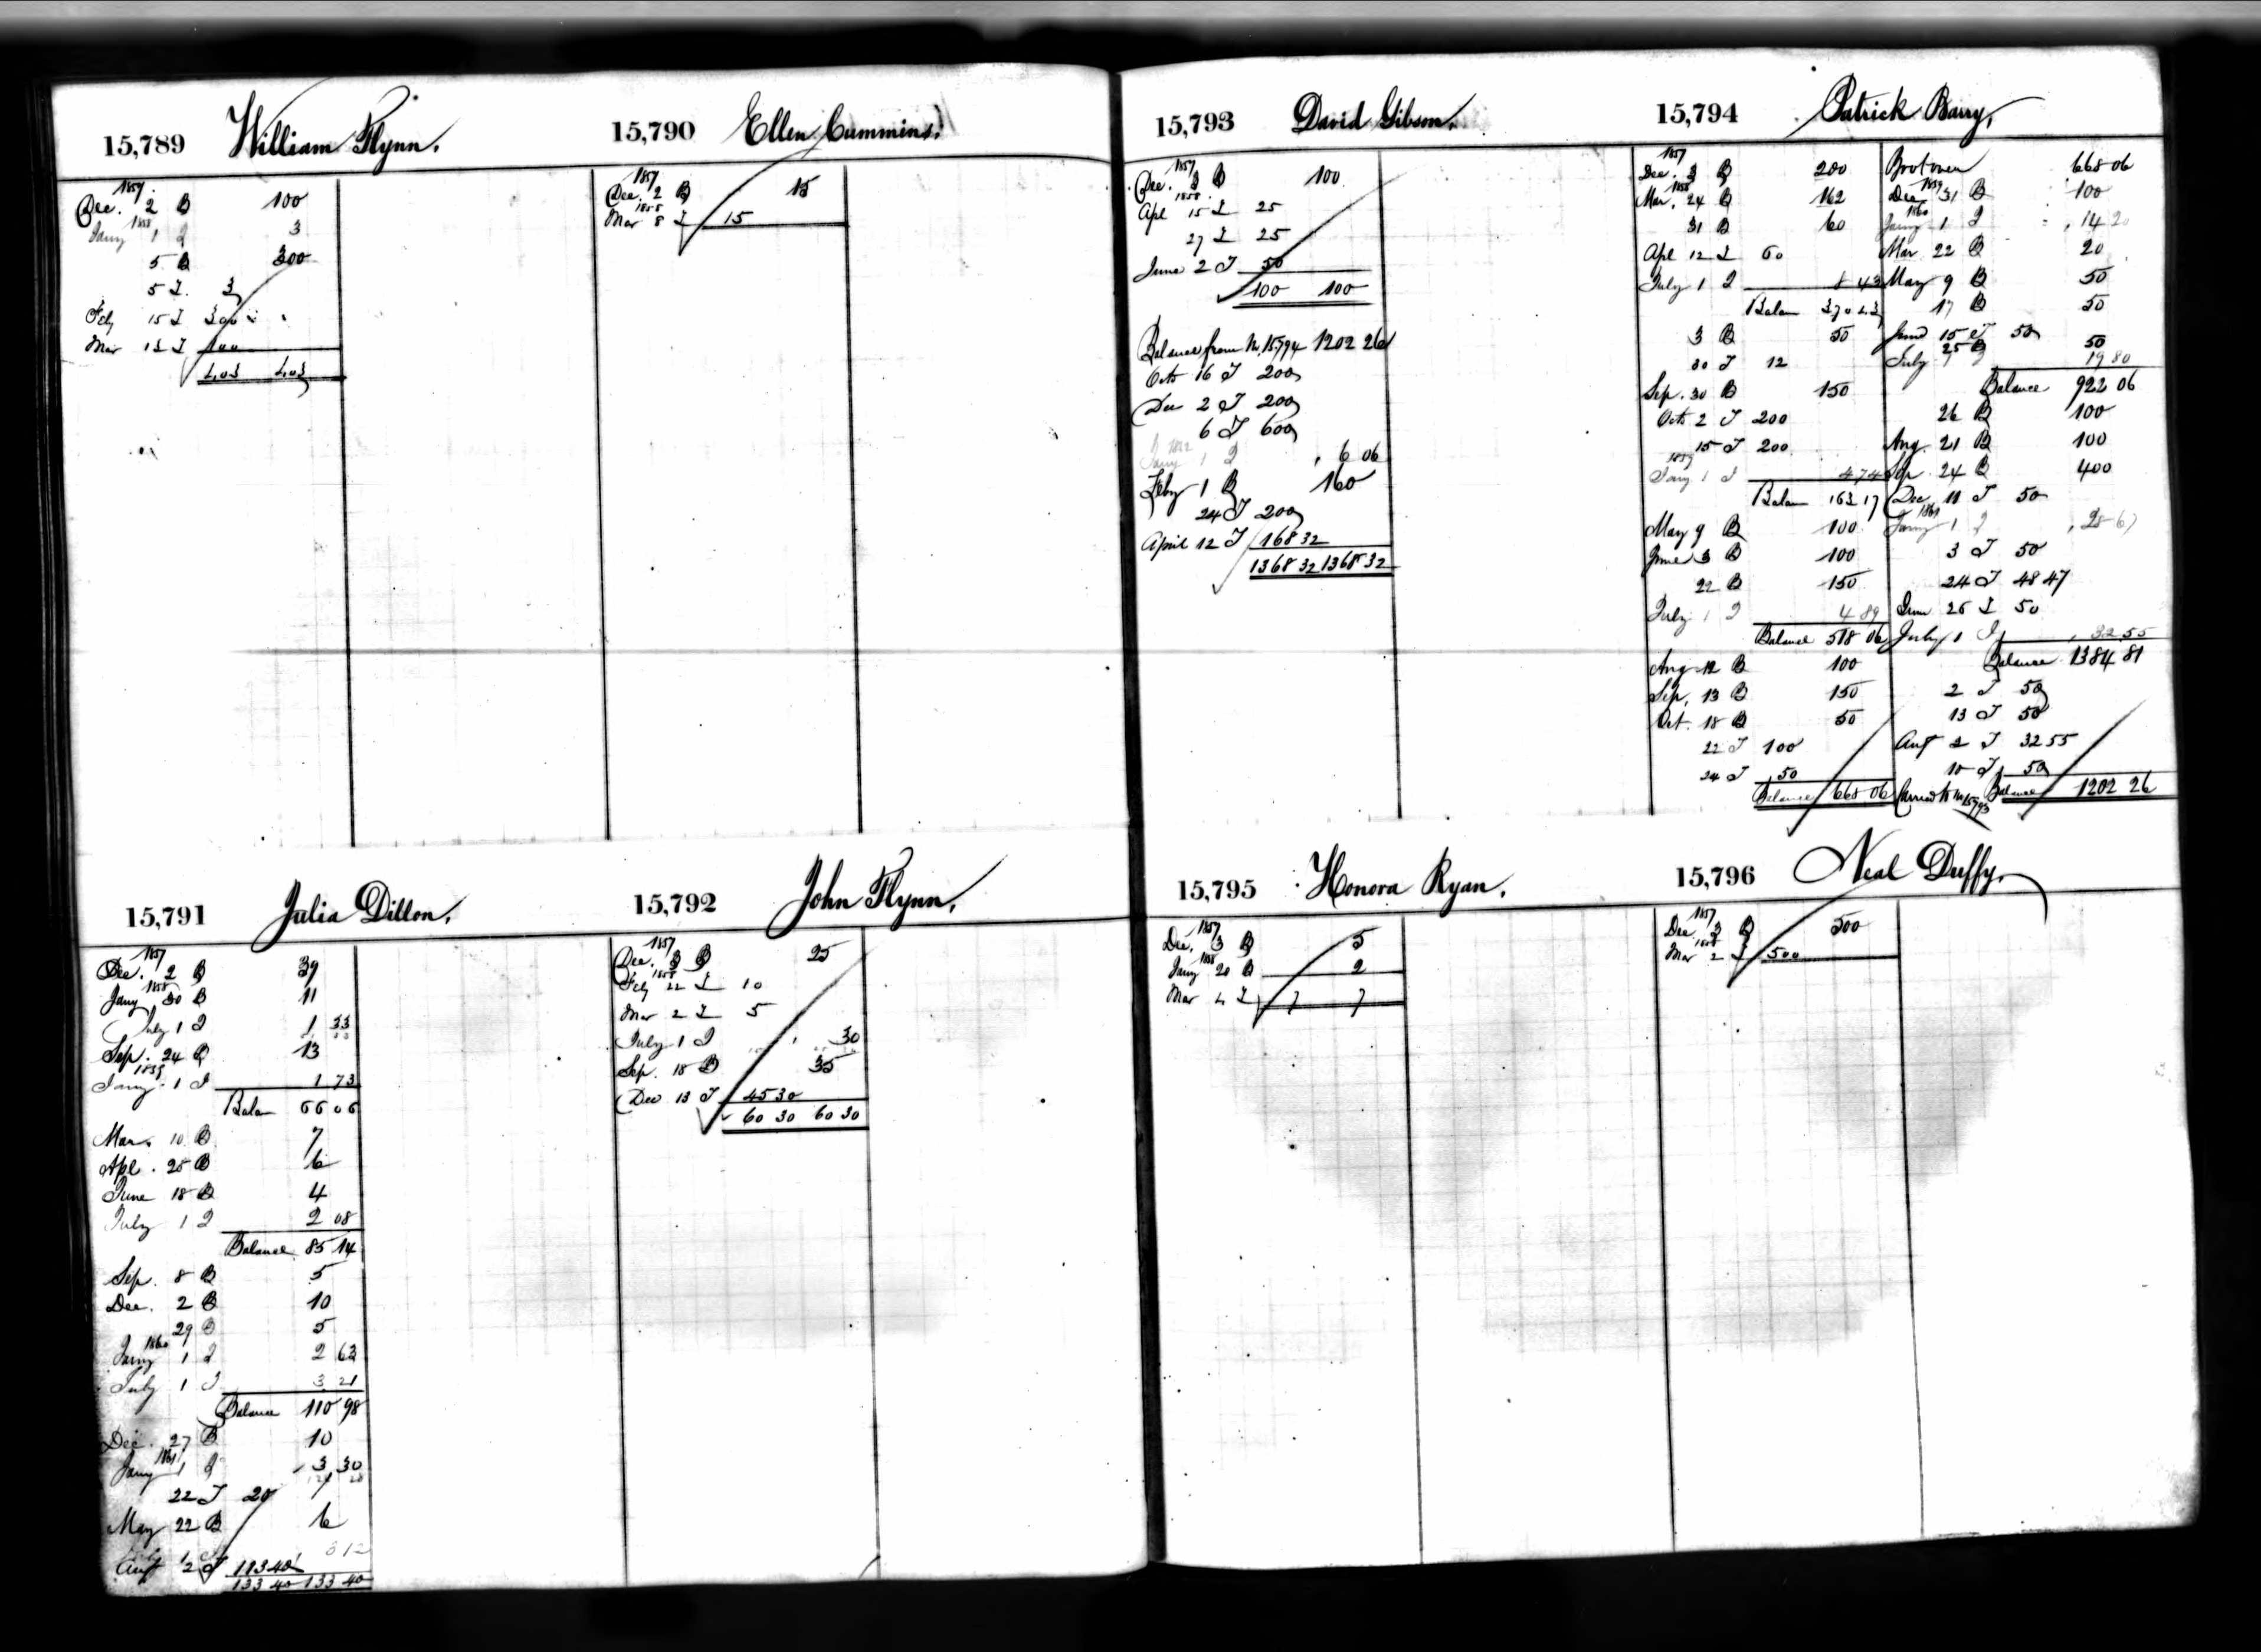 15,789 William Flynn.
1857
Dec. 2 B 100
1858
Jany 1 I 3
5 B 300
5 I 3
Feby 15 I 300
Mar 13 I 100
403 403
15,790 Ellen Cummins.
1857
Dec. 2 B 15
1858
Mar 8 I 15
15,791 Julia Dillon.
1857
Dec. 2 B 39
1858
Jany 30 B 11
July 1 I 1 33
Sep. 24 B 13
1859
Jany 1 I 1 73
Balan 66 06
Mar. 10 B 7
Apl. 25 B 6
June 18 B 4
July 1 I 2 08
Balance 85 14
Sep. 8 B 5
Dec. 2 B 10
29 B 5
1860
Jany 1 I 2 63
July 1 I 3 21
Balance 110 98
Dec. 27 B 10
1861
Jany 1 I 3 30
22 I 20
May 22 B 6
3 12
Augt 2 I 113 40
133 40 133 40
15,792 John Flynn.
1857
Dec. 3 B 25
1858
Feby 22 I 10
Mar 2 I 5
July 1 I 30
Sep. 18 B 35
Dec 13 I 45 30
60 30 60 30
15,793 David Gibson.
1857
Dec. 3 B 100
1858
Apl 15 I 25
27 I 25
June 2 I 50
100 100
Balance from No. 15794 1202 26
Octo 16 I 200
Dec 2 I 200
6 I 600
1862
Jany 1 I 6 06
Feby 1 B 160
24 I 200
April 12 I 168 32
1368 32 1368 32
15,794 Patrick Barry.
1857
Dec. 3 B 200
1858
Mar. 24 B 162
31 B 60
Apl 12 I 60
July 1 I 8 43
Balan 370 43
3 B 50
30 I 12
Sep. 30 B 150
Octo 2 I 200
15 I 200
1859
Jany 1 I 4 74
Balan 163 17
May 9 B 100
June 3 B 100
22 B 150
July 1 I 4 89
Balance 518 06
Aug 12 B 100
Sep. 13 B 150
Oct. 18 B 50
22 I 100
24 I 50
Balance 668 06
Brot over 668 06
1859
Dec 31 B 100
1860
Jany 1 I 14 20
Mar 22 B 20
May 9 B 50
17 B 50
June 15 I 50
25 B 50
July 1 I 19 80
Balance 922 06
26 B 100
Aug. 21 B 100
Sep. 24 B 400
Dec. 11 I 50
1861
Jany 1 I 28 67
3 I 50
24 I 48 47
June 25 I 50
July 1 I 32 55
Balance 1384 81
2 I 50
13 I 50
Augt 2 I 32 55
10 I 50
Carried to No 15793 Balance 1202 26
15,795 Honora Ryan.
1857
Dec. 3 B 5
1858
Jany 20 B 2
Mar 4 I 7 7
15,796 Neal Duffy.
1857
Dec 3 B 500
1858
Mar 2 I 500